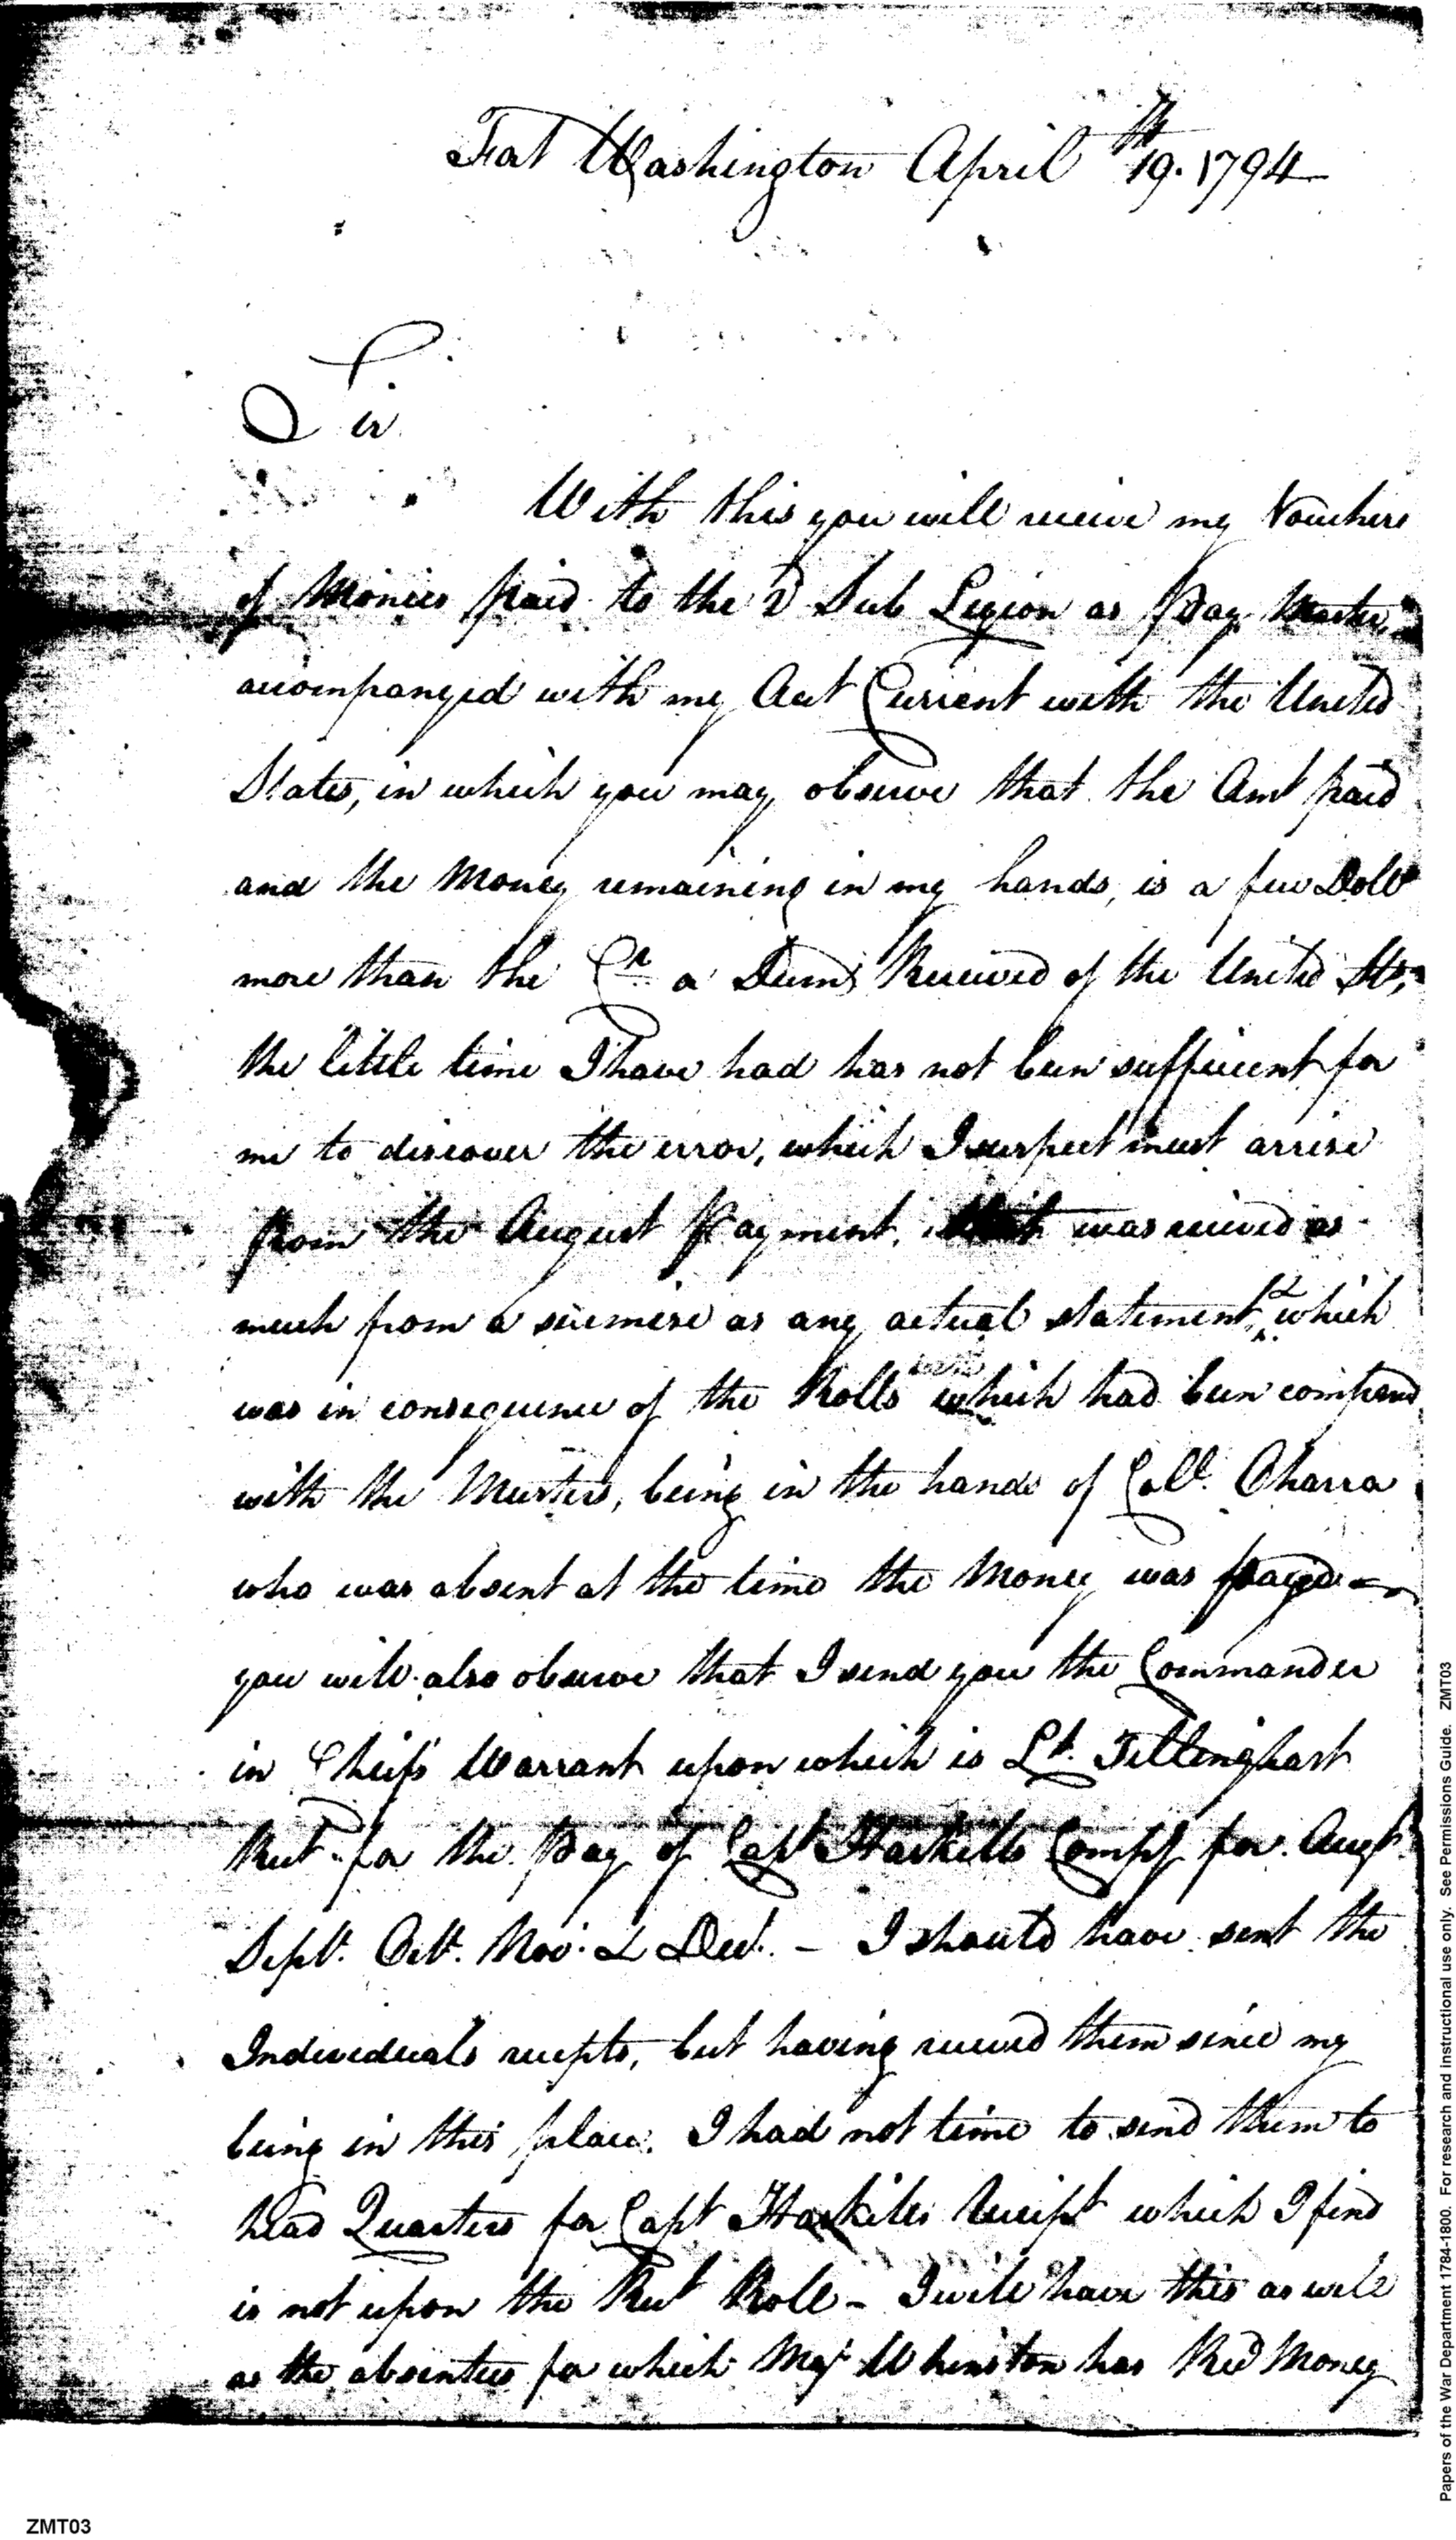 Fort Washington April 19th. 1794
Sir
With this you will receive my Vouchers
of Monies paid to the 2d Sub Legion as Pay Master,
accompanyed with my Act Current with the United
States, in which you may observe that the Amt paid
and the Money remaining in my hands, is a few Dolls
more than the Cr a Sums Received of the United Sts,
the little time I have had has not been sufficient for
me to discover the error, which I suspect must arrise
from the August Payment, was recived as
much from a surmise as any actual statement, which
was in consequence of the Rolls which had been compared
with the Musters, being in the hands of Coll. Oharra
who was absent at the time the Money was payed —
you will also observe that I send you the Commander
in Chiefs Warrant upon which is Lt. Tillinghast
Rect. for the Pay of Capt Haskills Compy for Augt.
Sept. Octt. Nov. & Decr. — I should have sent the
Individuals recepts, but having received them since my
being in this place. I had not time to send them to
head Quarters for Capt Haskills Receipt which I find
is not upon the Rect Roll — I will have this as well
as the absentees for which Majr Whinston has Recd Money
Papers of the War Department 1784-1800. For research and instructional use only. See Permissions Guide. ZMT03
ZMT03